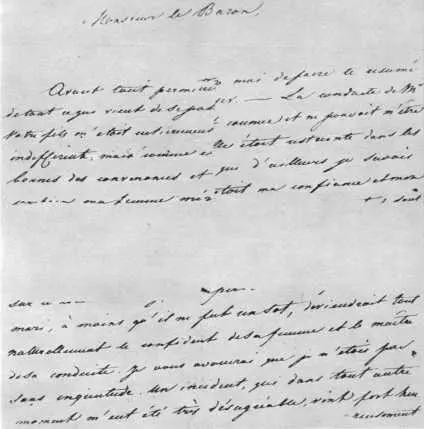 Monsieur le Baron,
Avant tout permettez moi de faire le résumé
de tout ce qui vient de se passer. — La conduite de Mr
votre fils m'était entièrement connue et ne pouvait m'être
indifférente, mais comme elle était restreinte dans les
bornes des convenances et que d'ailleurs je savais
combien ma femme méritait ma confiance et mon
mari, à moins qu'il ne fut un sot, deviendrait tout
naturellement le confident de sa femme et le maître
de sa conduite. Je vous avouerai que je n'étois pas
sans inquiétude. Un incident, qui dans tout autre
moment m'eut été très désagréable, vint fort heu
reusement